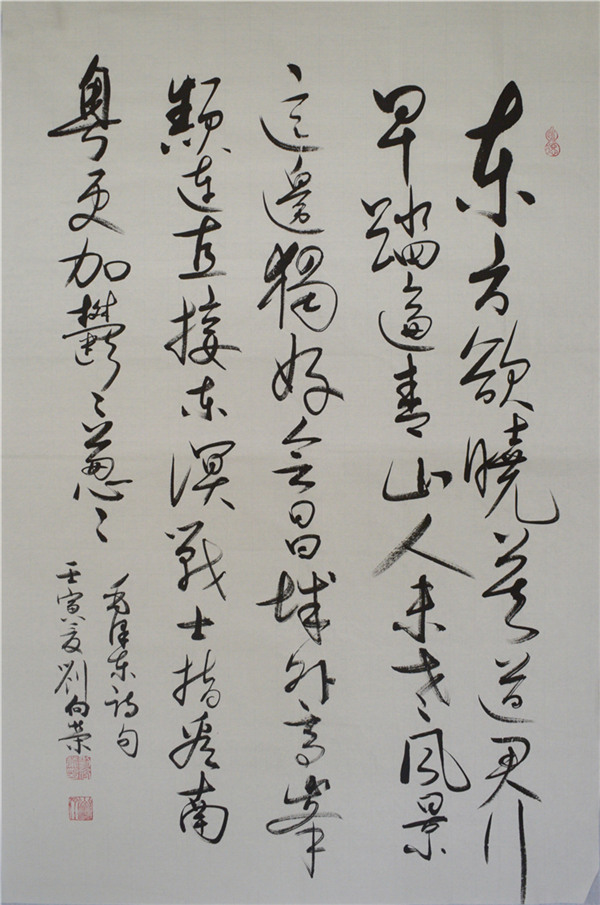 东方欲曉莫道君行
早踏遍青山人未老风景
這邊獨好会昌城外高峯
顛连直接东溟戰士指看南
粤更加鬱〻葱〻
毛泽东诗句
壬寅夏劉向荣